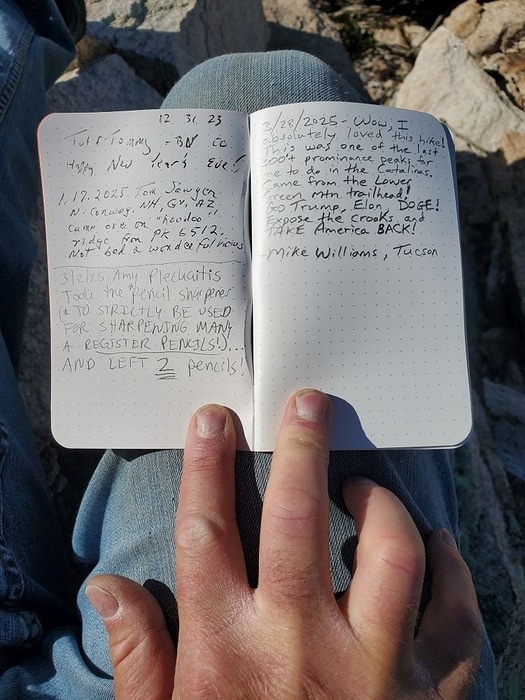 12 31 23
Tommy - BN CC
Happy New Year's Eve!
1.17.2025 Tom Sawyer
N. Conway, NH, GV, AZ.
Came over on "hoodoo"
ridge from PK 6512.
Not bad & wonderful views
3/2/25 Amy Plechaitis
Took the pencil sharpener
(* TO STRICTLY BE USED
FOR SHARPENING MANY
A REGISTER PENCILS!)...
AND LEFT 2 pencils!
3/28/2025 - Wow, I
absolutely loved this hike!
This was one of the last
200+ prominence peaks for
me to do in the Catalinas.
Came from the Lower
Green Mtn. trailhead!
GO Trump, Elon, DOGE!
Expose the crooks and
TAKE America BACK!
-Mike Williams, Tucson